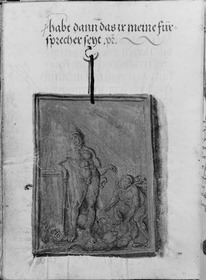 habe dann das ir meine für-
sprecher seyt. ꝛc.